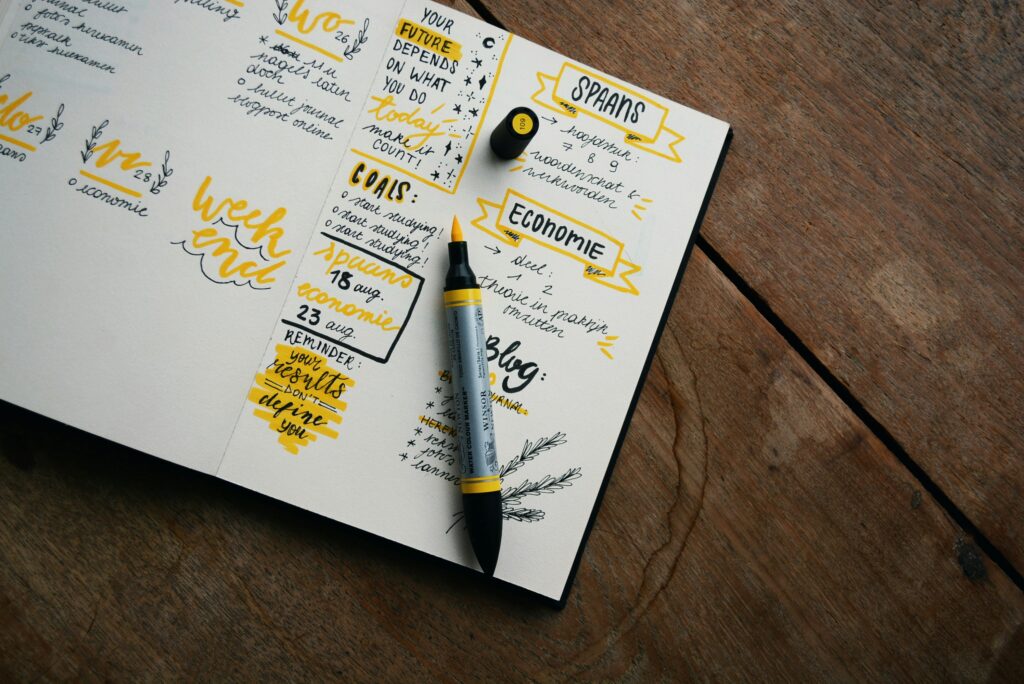 journal
o foto's herexamen
o tekst herexamen
wo
26
* nagels laten
doen
o bullet journal
blogpost online
do
27
vr
28
o economie
week
end
YOUR
FUTURE
DEPENDS
ON WHAT
YOU DO
today
make it
COUNT!
GOALS:
o start studying!
o start studying!
o start studying!
spaans
18 aug.
economie
23 aug.
REMINDER:
your
results
DON'T
define
you
109
SPAANS
→ hoofdstuk:
7 8 9
woordenschat &
werkwoorden
ECONOMIE
→ deel:
1 2
theorie in praktijk
omzetten
Blog:
WINSOR
WATER COLOUR MARKER